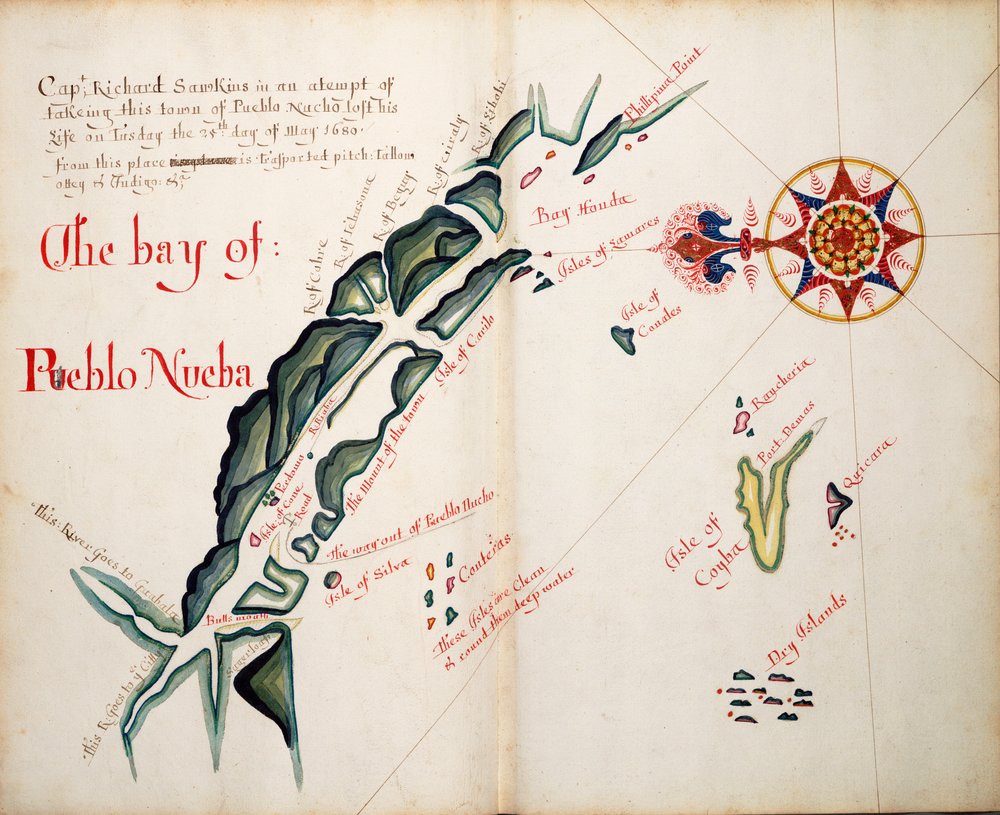 Capt Richard Sawkins in an atempt of
takeing this town of Pueblo Nucho lost his
Life on Tusday the 25th day of May 1680.
from this place is trasported pitch: tallow
& Indigo: &c
The bay of:
Pueblo Nueba
R. of
R. of
R. of
R. of
R. of
Phillipina Point
Bay Honda
Isles of
Isle of
Canales
Isle of Cavilo
The Mount of the town
Isle of Cone
Road
The way out of Pueblo Nucho
Isle of Silva
Conteras
These Isles are Clean
& round them deep water
This: River Goes to
This R: Goes to ye
Bulls mouth
Sugerloafe
Raucheria
Port: Demas
Quicara
Isle of
Coyba
Dry Islands